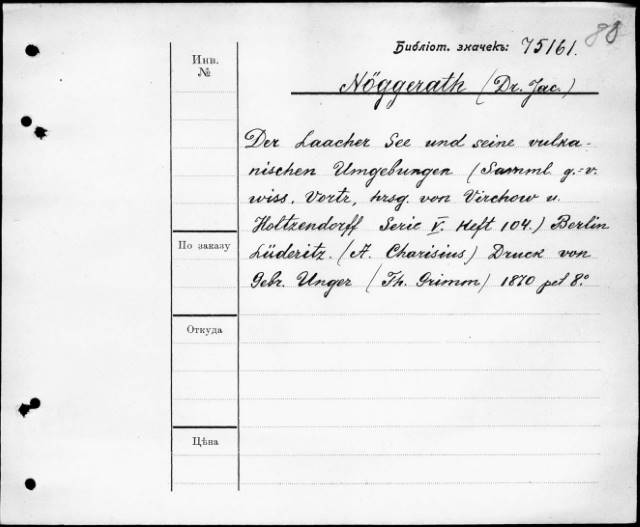 88
Библіот. значекъ: 75161.
Nöggerath (Dr. Jac.)
Инв.
№
Der Laacher See und seine vulka-
nischen Umgebungen (Samml. g.-v.
wiss. Vortr, hrsg. von Virchow u.
Holtzendorff Serie V. Heft 104.) Berlin
Lüderitz. (A. Charisius) Druck von
Gebr. Unger (Th. Grimm) 1870 pet 8.°
По заказу
Откуда
Цѣна